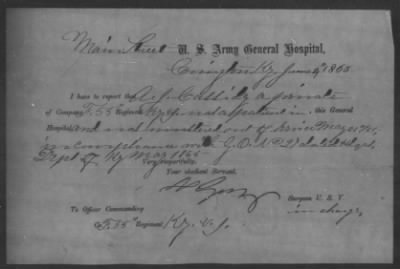 Main Street U. S. Army General Hospital,
Covington Ky June 9 1865
I have to report that A. J. Cassidy a private
of Company F. 55" Regiment Ky a patient in, this General
Hospital and was mustered out of service May 30 "65
in compliance with G.O. dated Hd. qrs.
Dept of Ky May 1865
Very respectfully,
Your obedient Servant,
Surgeon U. S. V
in charge,
To Officer Commanding
F. 55" Regiment Ky. V. I.